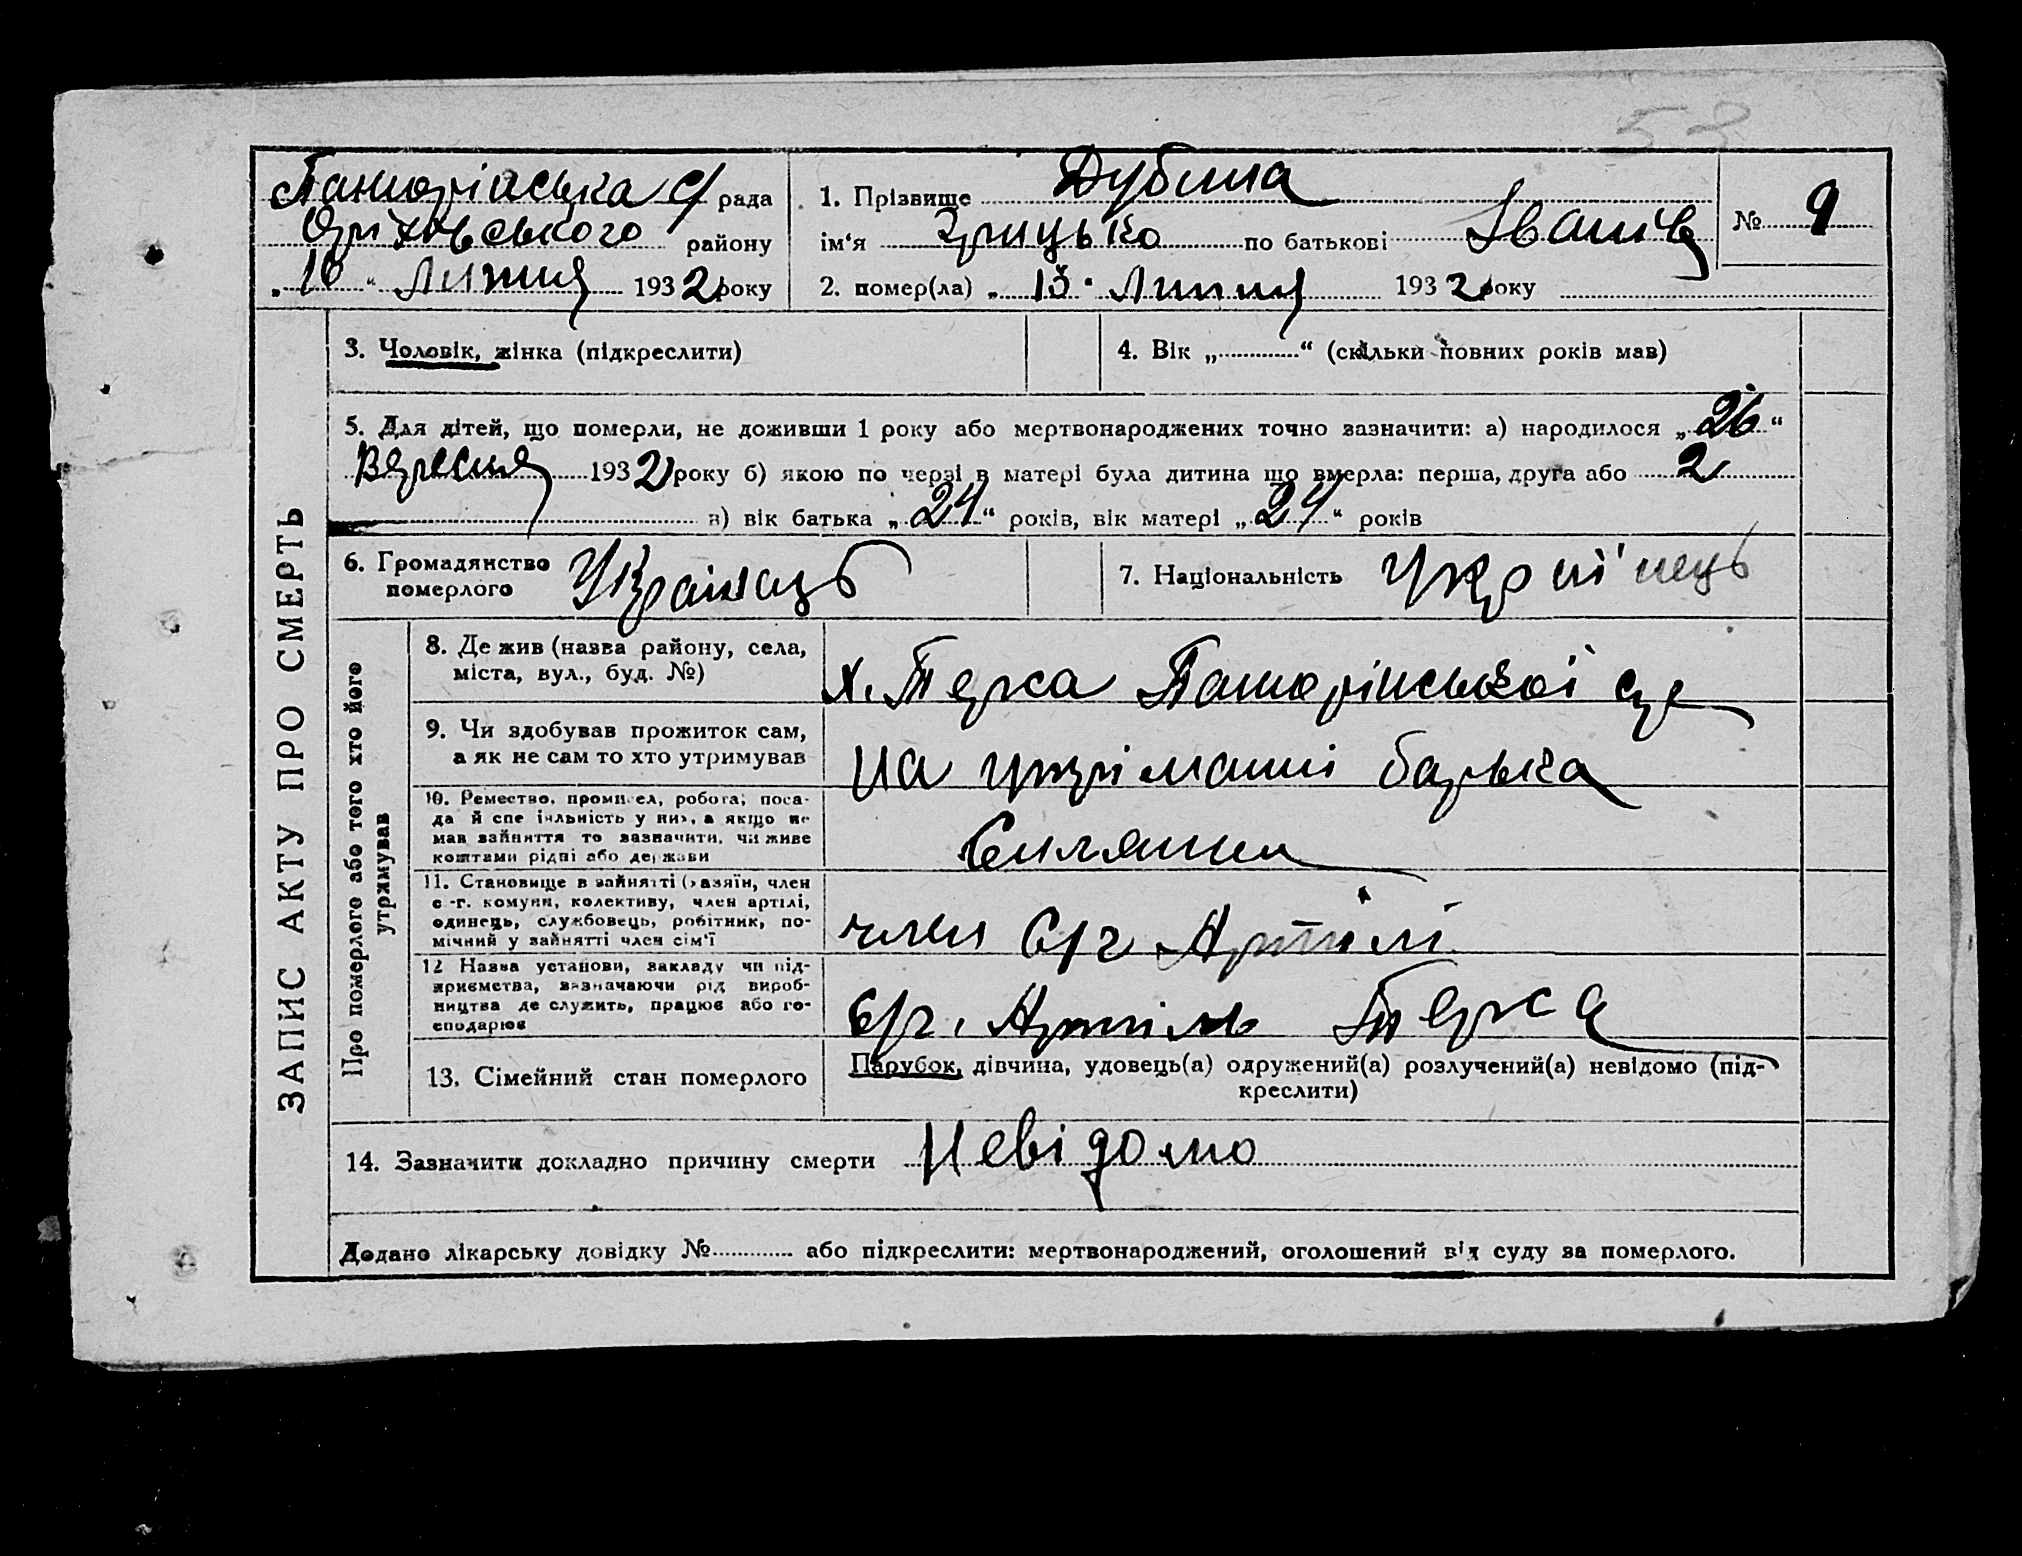 53
Танкорінська с/ рада
Оріхівського району
„ 16 “ Липня 1932 року
1. Прізвище Дубина
ім‘я Грицько по батькові Іванів
№ 9
2. помер(ла) „ 15 “ Липня 1932 року
ЗАПИС АКТУ ПРО СМЕРТЬ
3. Чоловік, жінка (підкреслити)
4. Вік „ “ (скільки повних років мав)
5. Для дітей, що померли, не доживши 1 року або мертвонароджених точно зазначити: а) народилося „ 26 “
Вересня 1932 року б) якою по черзі в матері була дитина що вмерла: перша, друга або 2
в) вік батька „ 24 “ років, вік матері „ 24 “ років
6. Громадянство
померлого Українець
7. Національність Українець
Про померлого або того хто його
утримував
8. Де жив (назва району, села,
міста, вул., буд. №)
х. Терса с/р
9. Чи здобував прожиток сам,
а як не сам то хто утримував
на утріманні батька
10. Ремество, промисел, робота; поса-
да й спеціяльність у них, а якщо не
мав зайняття то зазначити, чи живе
коштами рідні або держави
Силянин
11. Становище в зайнятті (хазяїн, член
с.-г. комуни, колективу, член артілі,
одинець, службовець, робітник, по-
мічний у зайнятті член сім‘ї
член С/г Артілі
12 Назва установи, закладу чи під-
приємства, зазначаючи рід вироб-
ництва де служить, працює або го-
сподарює
С/г. Артіль Терса
13. Сімейний стан померлого
Парубок, дівчина, удовець(а) одружений(а) розлучений(а) невідомо (під-
креслити)
14. Зазначити докладно причину смерти Невідомо
Додано лікарську довідку № або підкреслити: мертвонароджений, оголошений від суду за померлого.